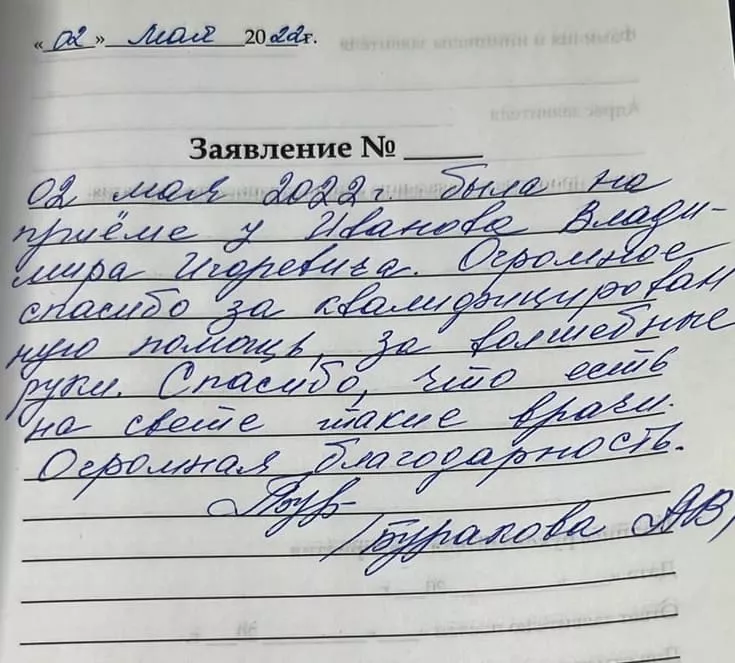 «02» мая 2022г.
Заявление № ____
02 мая 2022г. была на
приёме у Иванова Влади-
мира Игоревича. Огромное
спасибо за квалифицирован
ную помощь, за волшебные
руки. Спасибо, что есть
на свете такие врачи.
Огромная благодарность.
/Буракова АВ/